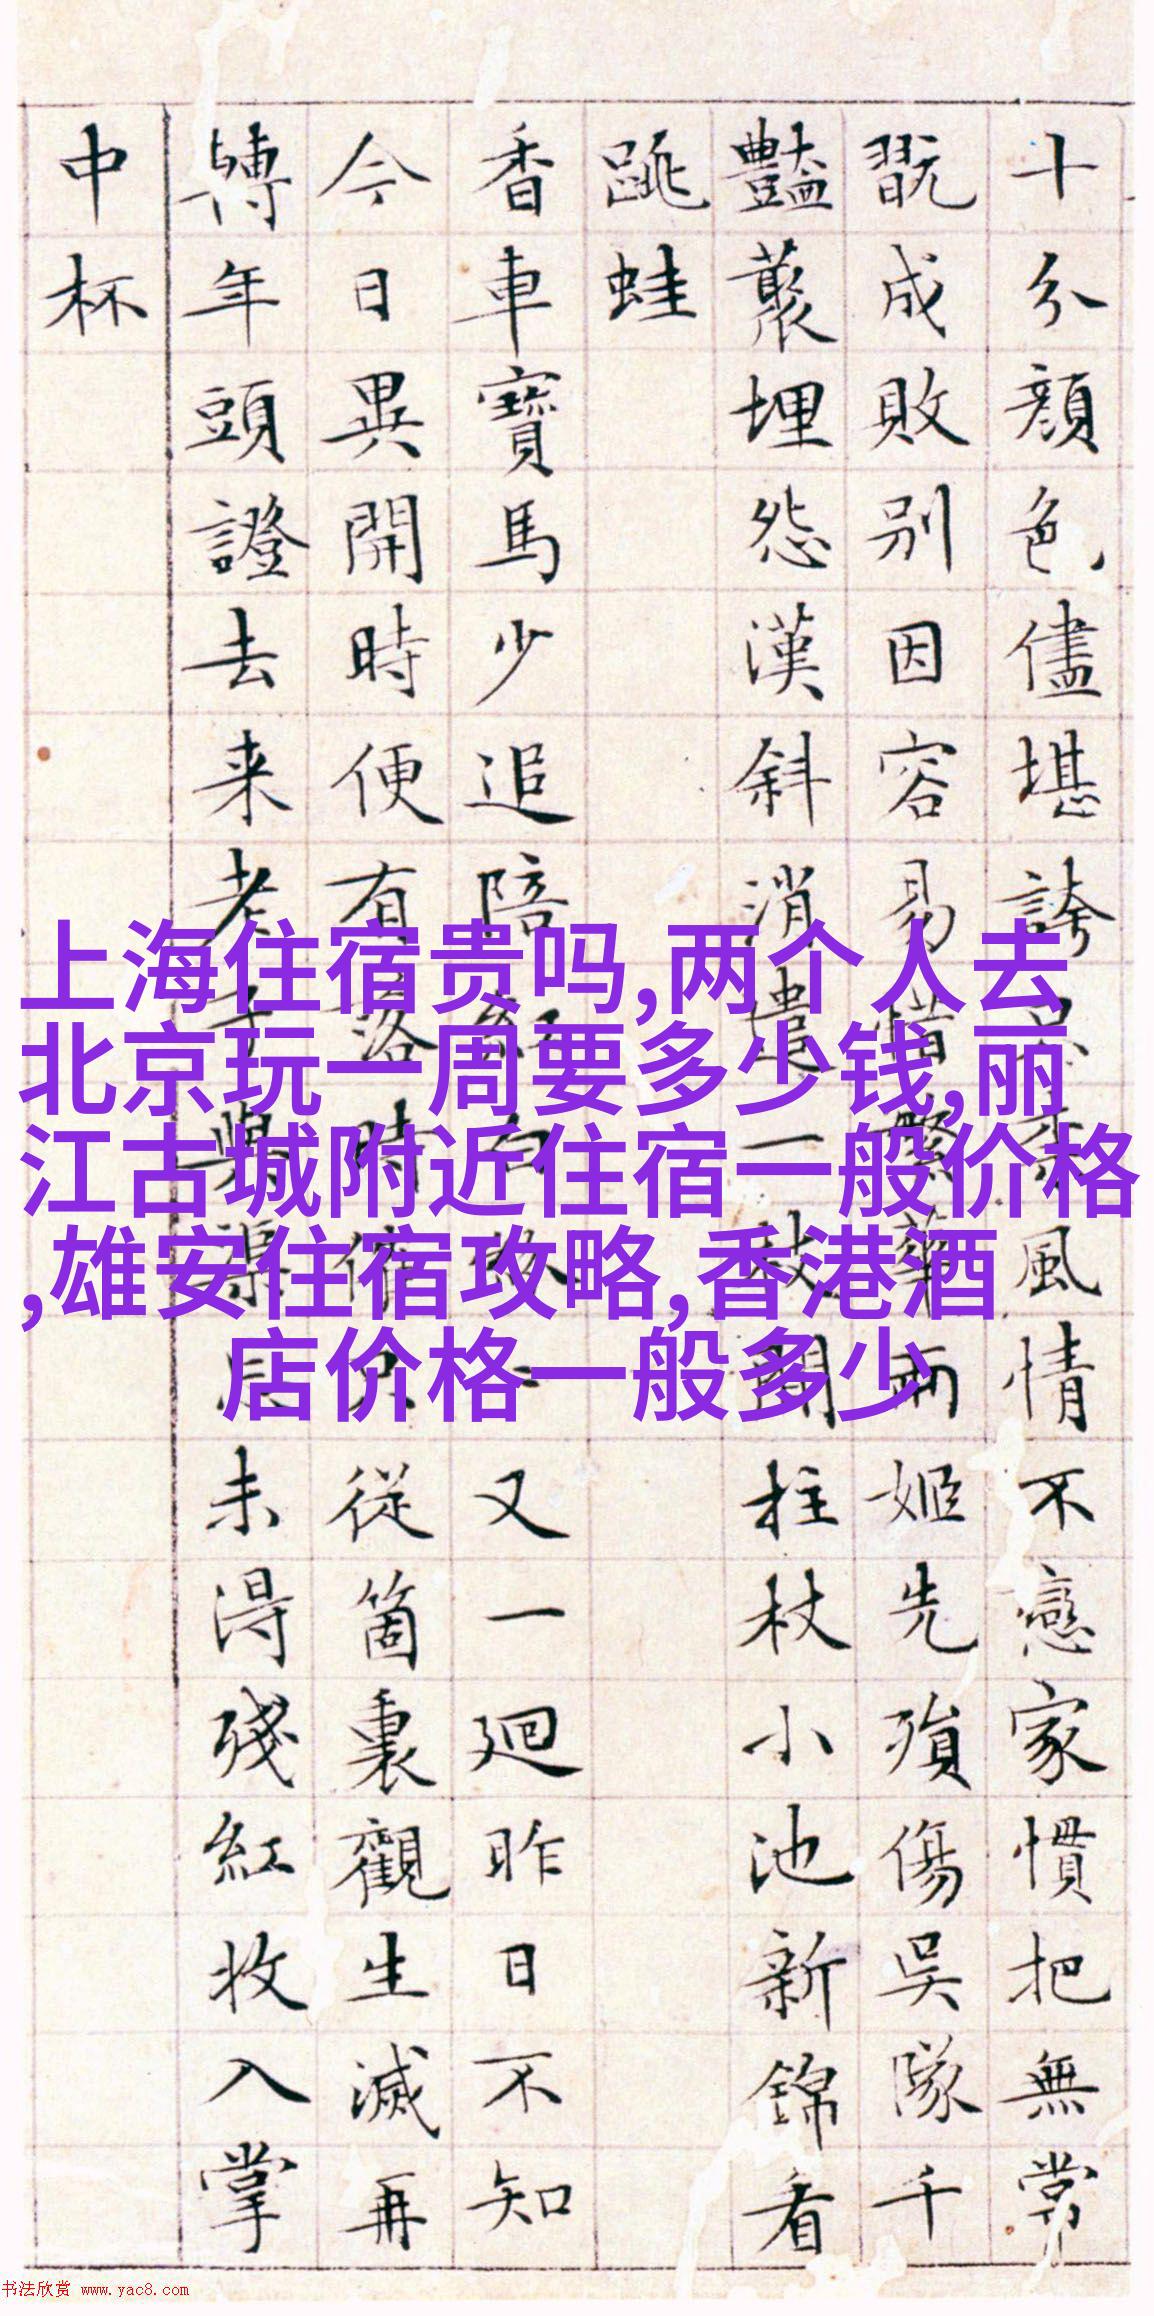 十分顔色儘堪誇風情不戀家慣把無常
翫成敗别因容易惜繁華兩姬先殞傷吳隊千
豔叢埋怨漢斜消遣一枝閑柱杖小池新錦看
跳蛙
香車寶馬少追陪紅白又一迴昨日不知
今日異開時便有落時催只從箇裏觀生滅再
轉年頭證去来老子與渠忘未得殘紅收入掌
中杯
上海住宿贵吗,两个人去
北京玩一周要多少钱,丽
江古城附近住宿一般价格
,雄安住宿攻略,香港酒
店价格一般多少
书法欣赏 www.yac8.com